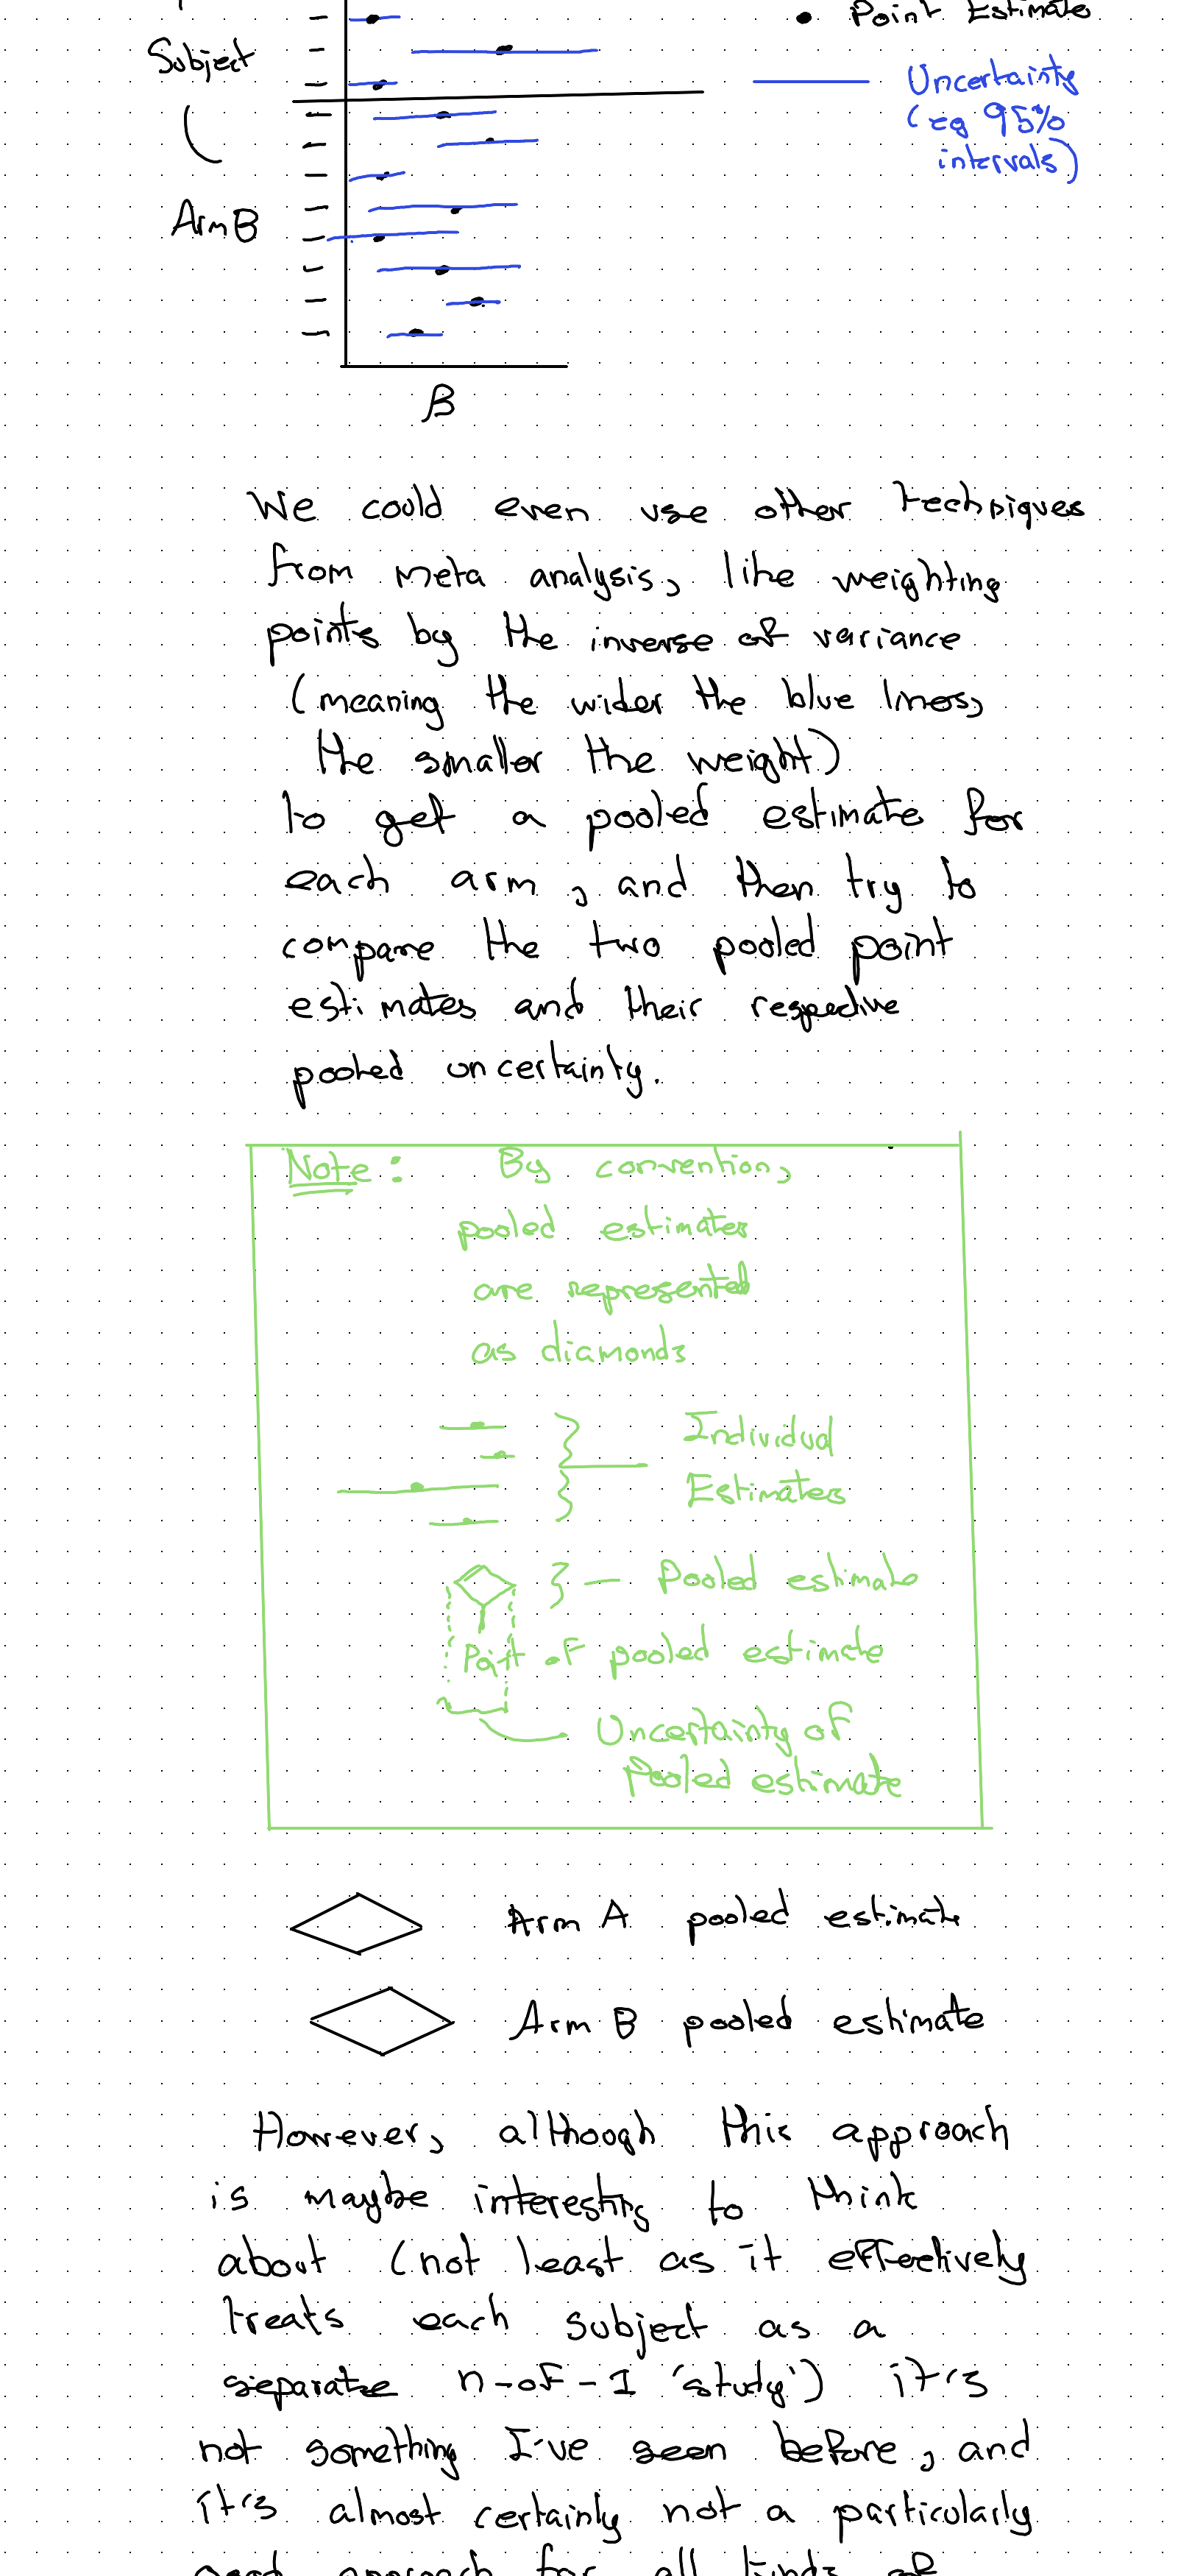 Point Estimate
Subject
Uncertainty
(eg 95%
intervals)
Arm B
β
We could even use other techniques
from meta analysis, like weighting
points by the inverse of variance
(meaning the wider the blue lines,
the smaller the weight)
to get a pooled estimate for
each arm, and then try to
compare the two pooled point
estimates and their respective
pooled uncertainty.
Note: By convention,
pooled estimates
are represented
as diamonds
Individual
Estimates
Pooled estimate
Point of pooled estimate
Uncertainty of
Pooled estimate
Arm A pooled estimate
Arm B pooled estimate
However, although this approach
is maybe interesting to think
about (not least as it effectively
treats each subject as a
separate n-of-1 'study') it's
not something I've seen before, and
it's almost certainly not a particularly
good approach for all kinds of